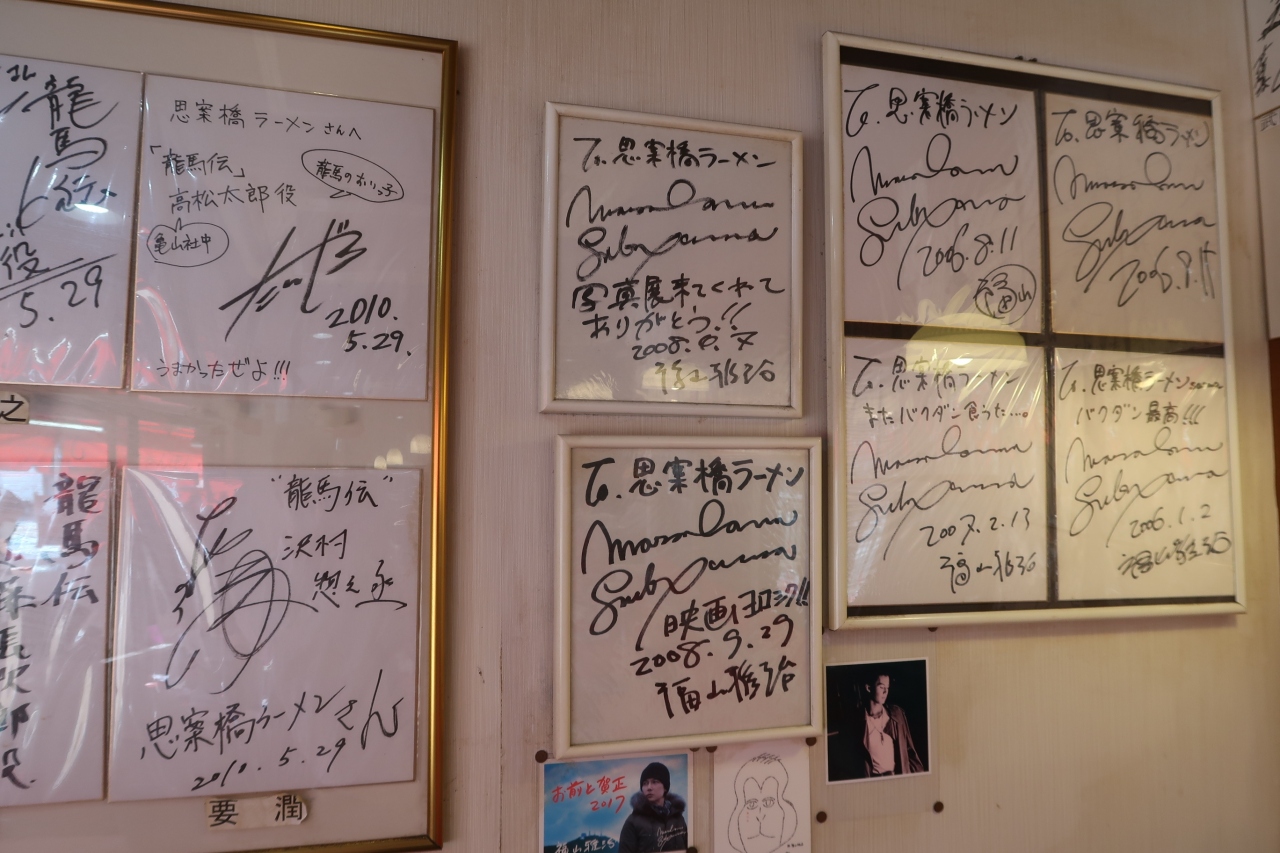 龍馬伝
役
5.29
思案橋ラーメンさんへ
「龍馬伝」
龍馬のおりょう子
高松太郎役
亀山社中
2010.
5.29.
うまかったぜよ!!!
之
龍馬伝
"龍馬伝"
沢村
惣之丞
思案橋ラーメンさん
2010.5.29
要 潤
To.思案橋ラーメン
Masaharu
Fukuyama
写真展来てくれて
ありがとう!!
福山雅治
To.思案橋ラーメン
Masaharu
Fukuyama
映画ヨロシク!!
2008.9.29
福山雅治
お前と賀正
2017
福山雅治
To.思案橋ラーメン
Masaharu
Fukuyama
2006.8.11
福山
To.思案橋ラーメン
Masaharu
Fukuyama
To.思案橋ラーメン
またバクダン食うた…。
Masaharu
Fukuyama
2007.2.13
福山雅治
To.思案橋ラーメン
バクダン最高!!!
Masaharu
Fukuyama
2006.1.2
福山雅治